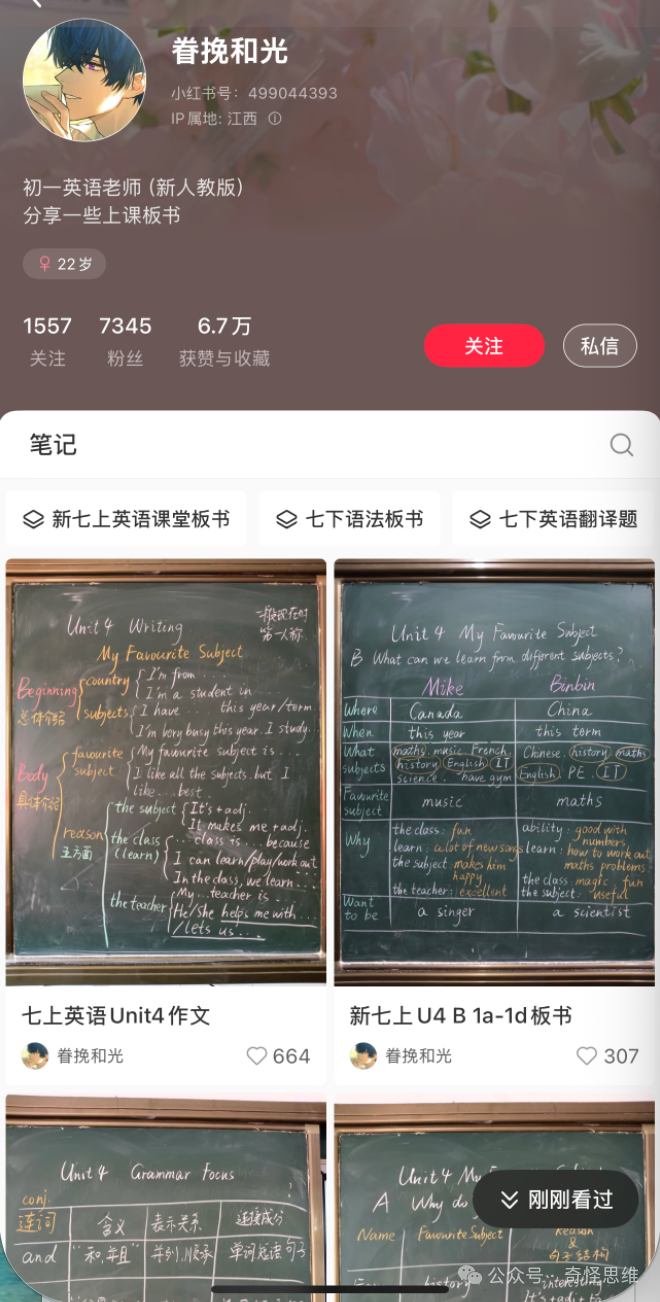 眷挽和光
小红书号：499044393
IP属地: 江西
初一英语老师（新人教版）
分享一些上课板书
♀ 22岁
1557 7345 6.7万
关注 粉丝 获赞与收藏
关注
私信
笔记
新七上英语课堂板书
七下语法板书
七下英语翻译题
Unit 4 Writing
一般现在时
第一人称
My Favourite Subject
Beginning
总体介绍
country
I'm from ...
I'm a student in ...
subjects
I have ... this year/term.
I'm very busy this year. I study...
Body
具体介绍
favourite
subject
My favourite subject is ...
I like all the subjects, but I
like...best.
reason
五方面
the subject
It's + adj.
It makes me + adj.
the class
(learn)
... class is ... because
I can learn/play/work out
In the class, we learn...
the teacher
My ... teacher is ...
He/she helps me with...
/ lets us ...
Unit 4 My Favourite Subject
B What can we learn from different subjects?
Mike Binbin
Where Canada China
When this year this term
What
subjects
maths. music. French.
history English IT
science. have gym
Chinese. history maths
English PE. IT
Favourite
subject
music maths
Why
the class: fun
learn: a lot of new songs
the subject: makes him
happy
the teacher: excellent
ability: good with
numbers
learn: how to work out
maths problems
the class: magic, fun
the subject: useful
Want
to be
a singer a scientist
七上英语Unit4作文
眷挽和光 664
新七上U4 B 1a-1d板书
眷挽和光 307
Unit 4 Grammar Focus
conj.
连词 含义 表示关系 连接成分
and "和,并且" 并列,顺承 单词短语句子
Unit 4 My
A Why do
Name Favourite Subject Reason
&
句子结构
history interesting
刚刚看过
公众号 · 奇怪思维